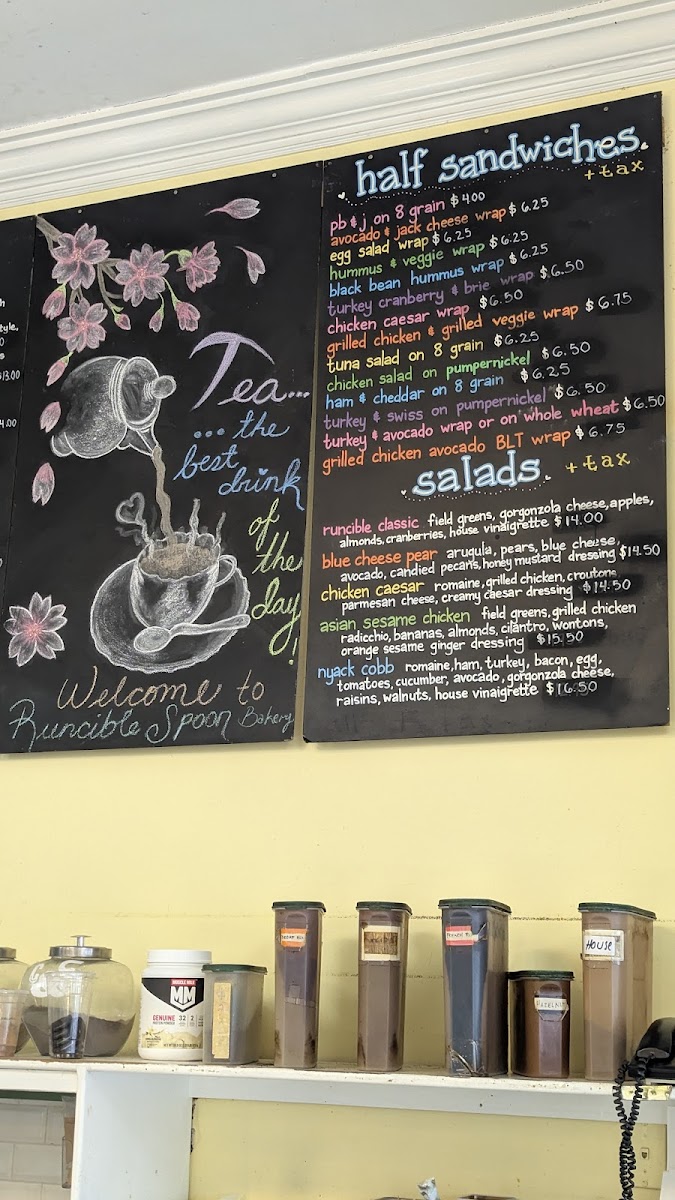 $13.00
Tea...
... the
best
drink
of
the
day!
Welcome to
Runcible Spoon Bakery
half sandwiches
+ tax
pb & j on 8 grain $4.00
avocado & jack cheese wrap $6.25
egg salad wrap $6.25
hummus & veggie wrap $6.25
black bean hummus wrap $6.25
turkey cranberry & brie wrap $6.50
chicken caesar wrap $6.50
grilled chicken & grilled veggie wrap $6.75
tuna salad on 8 grain $6.25
chicken salad on pumpernickel $6.50
ham & cheddar on 8 grain $6.25
turkey & swiss on pumpernickel $6.50
turkey & avocado wrap or on whole wheat $6.50
grilled chicken avocado BLT wrap $6.75
salads + tax
runcible classic field greens, gorgonzola cheese, apples,
almonds, cranberries, house vinaigrette $14.00
blue cheese pear arugula, pears, blue cheese,
avocado, candied pecans, honey mustard dressing $14.50
chicken caesar romaine, grilled chicken, croutons,
parmesan cheese, creamy caesar dressing $14.50
asian sesame chicken field greens, grilled chicken
radicchio, bananas, almonds, cilantro, wontons,
orange sesame ginger dressing $15.50
nyack cobb romaine, ham, turkey, bacon, egg,
tomatoes, cucumber, avocado, gorgonzola cheese,
raisins, walnuts, house vinaigrette $16.50
MUSCLE MILK
GENUINE
PROTEIN POWDER
32
HAZELNUT
HOUSE